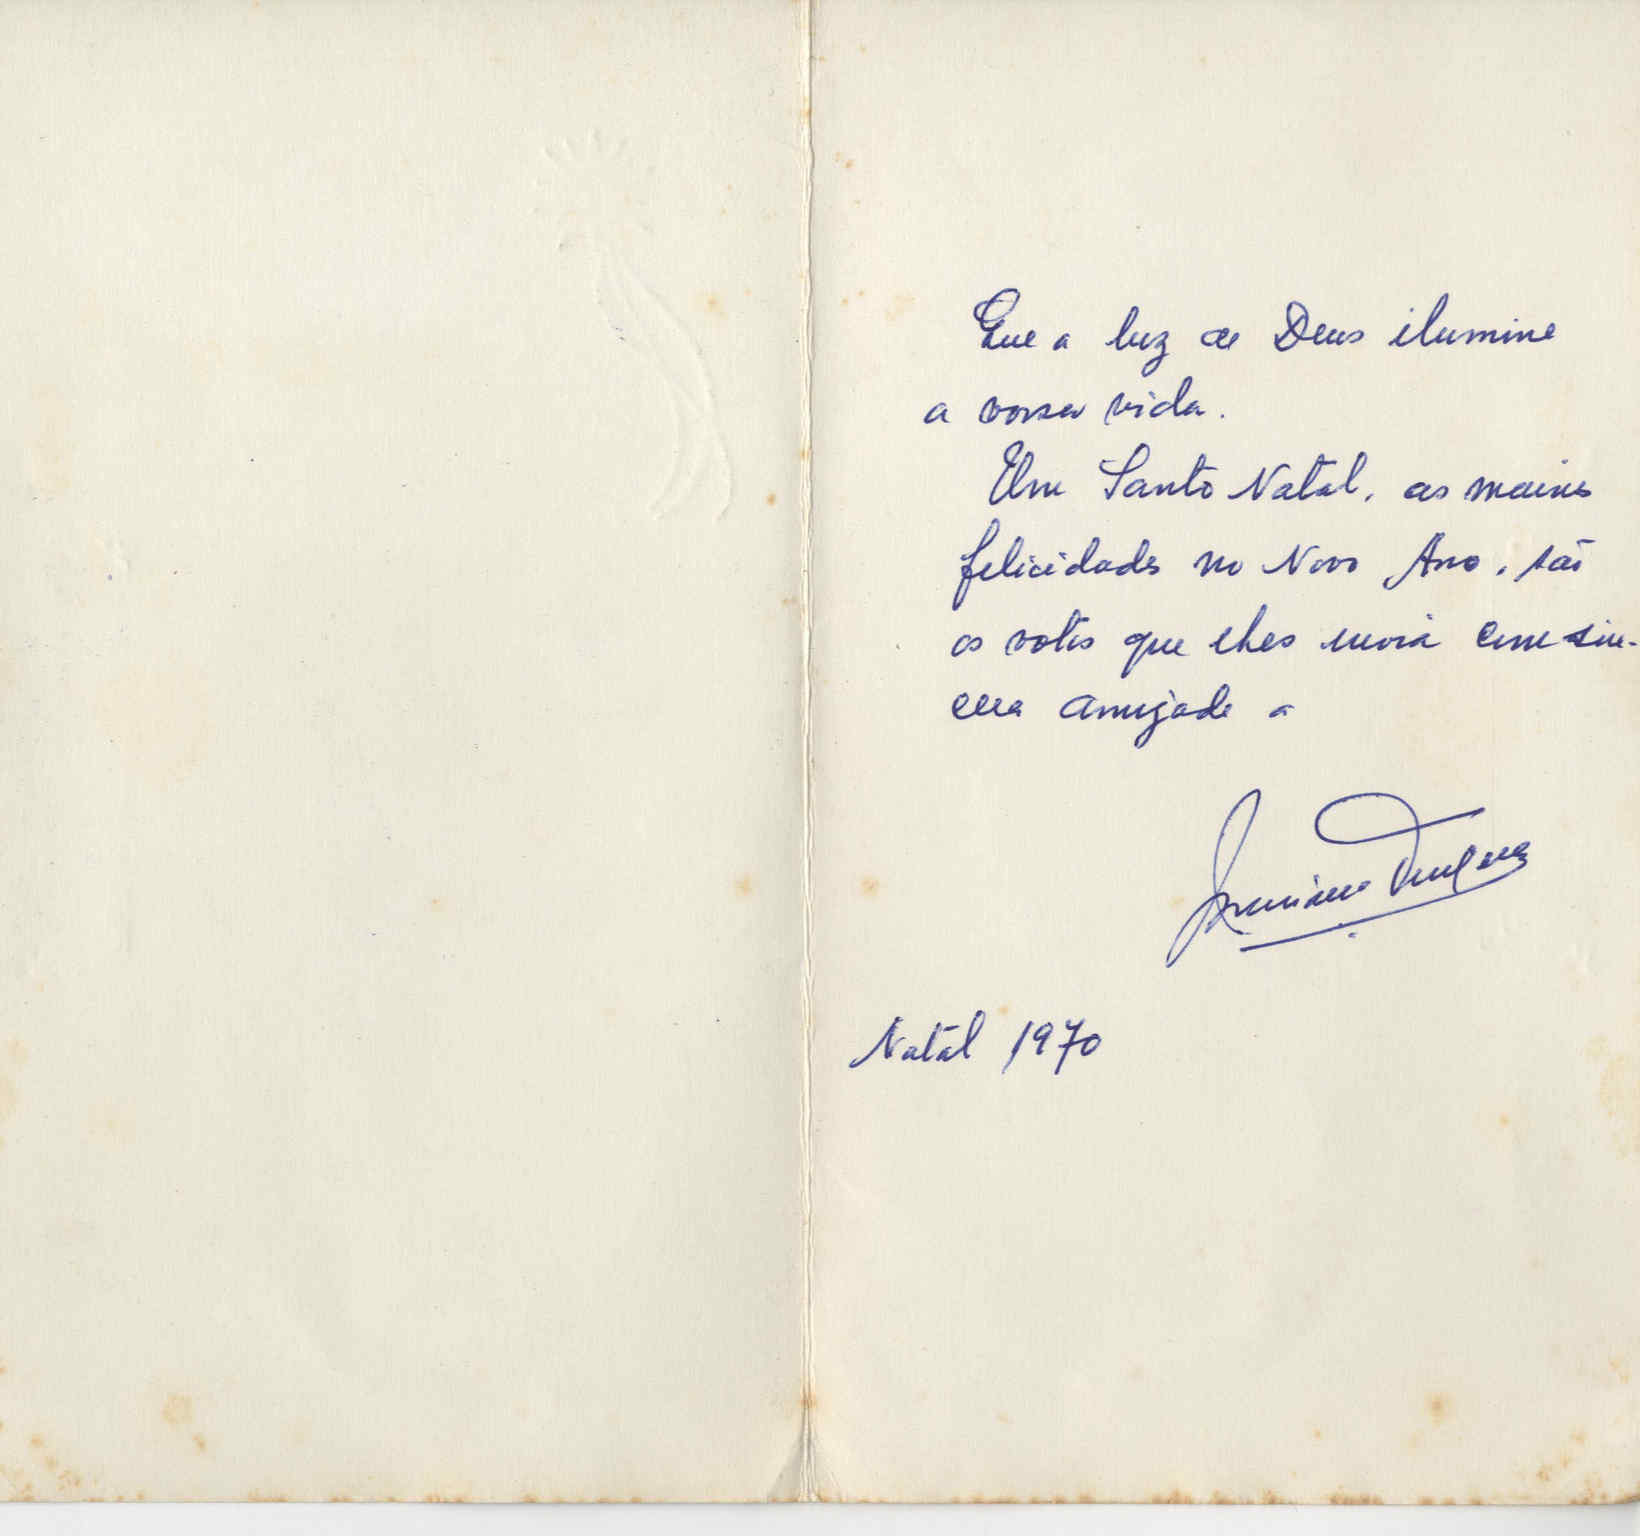 Que a luz de Deus ilumine
a vossa vida.
Um Santo Natal, as maires
felicidades no Novo Ano, são
os votos que lhes envia com sin-
cera amizade a
Natal 1970